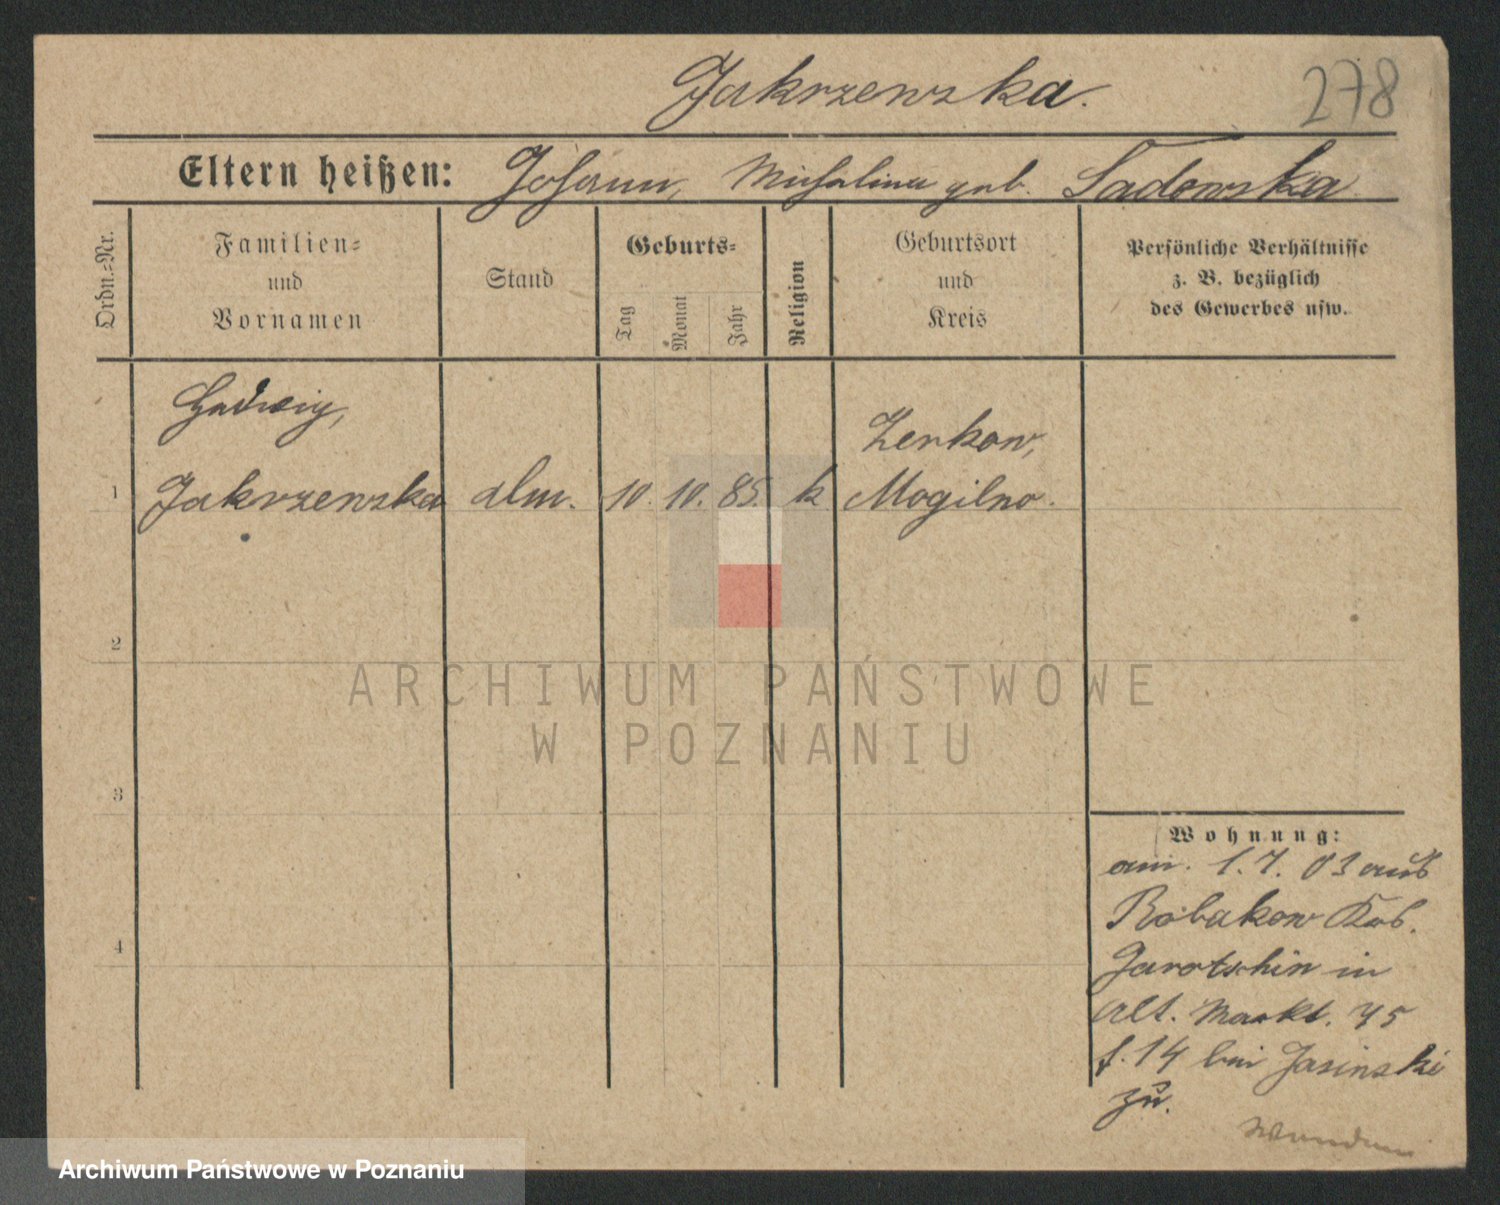 Jakrzewska.
278
Eltern heißen: Johann, Michalina geb. Sadowska
Ordn.=Nr.
Familien=
und
Vornamen
Stand
Geburts=
Tag
Monat
Jahr
Religion
Geburtsort
und
Kreis
Persönliche Verhältnisse
z. B. bezüglich
des Gewerbes usw.
Hedwig,
Zerkow,
1 Jakrzewska 10. 10. 85. k Mogilno.
2
3
4
Wohnung:
am. 1.7.03 aus
Robakow
Jarotschin in
Alt. Markt. 75
f. 14 bei Jasinski
zu.
ARCHIWUM PAŃSTWOWE
W POZNANIU
Archiwum Państwowe w Poznaniu